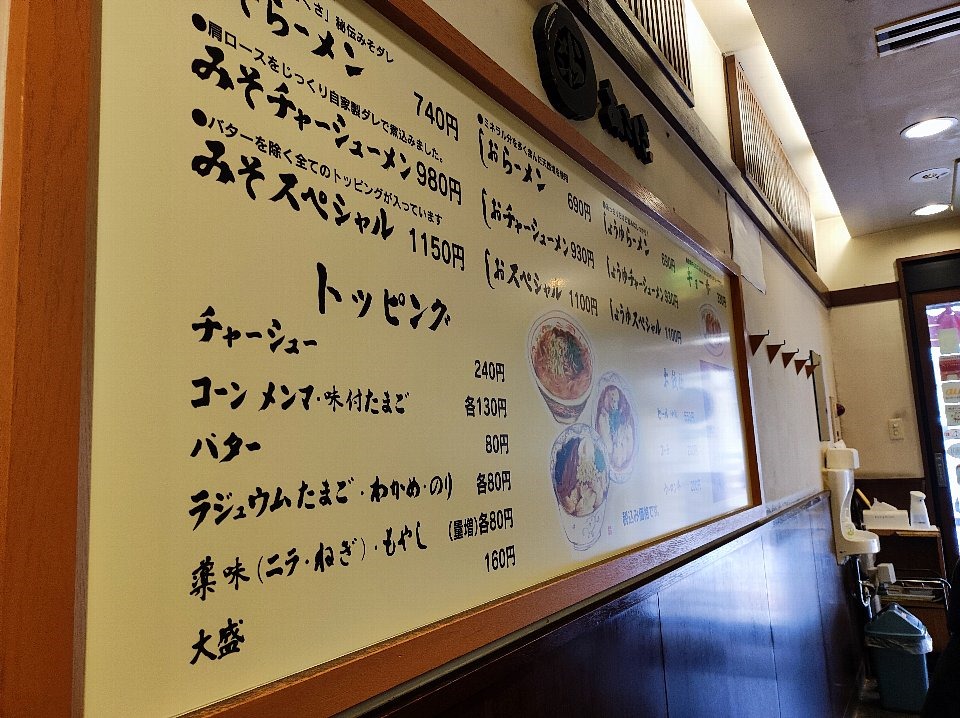 秘伝みそダレ
らーメン 740円
●肩ロースをじっくり自家製ダレで煮込みました。
みそチャーシューメン 980円
●バターを除く全てのトッピングが入っています
みそスペシャル 1150円
●ミネラル分を多く含んだ天然塩を使用
しおらーメン 690円
しおチャーシューメン 930円
しおスペシャル 1100円
しょうゆらーメン 690円
しょうゆチャーシューメン 930円
しょうゆスペシャル 1100円
ギョーザ
トッピング
チャーシュー 240円
コーン メンマ・味付たまご 各130円
バター 80円
ラジュウムたまご・わかめ・のり 各80円
薬味(ニラ・ねぎ)・もやし (量増)各80円
大盛 160円
税込み価格です。